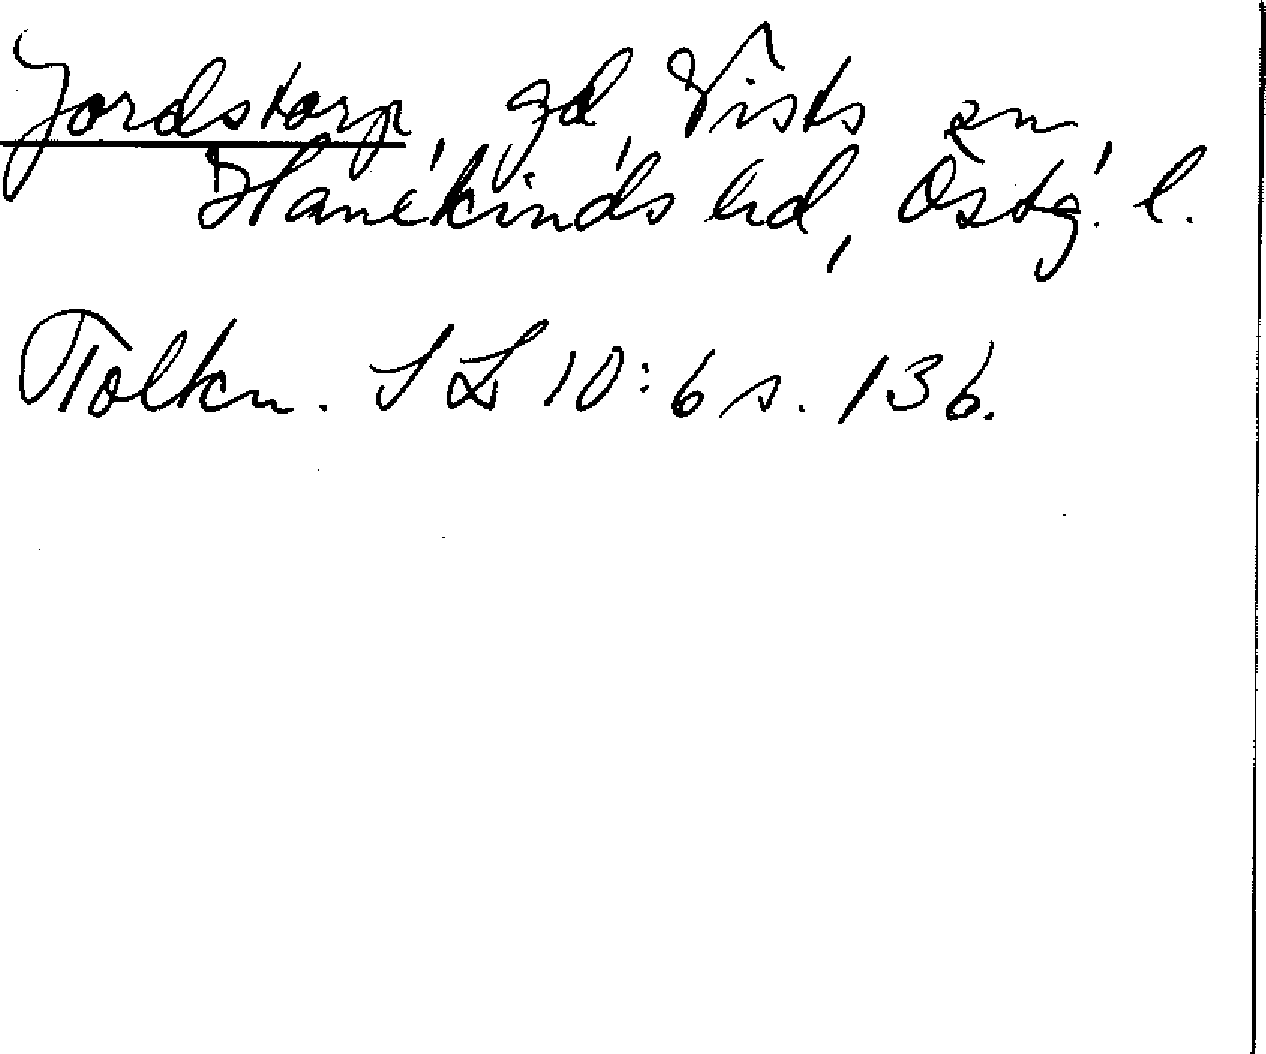 Jordstorp, gd, Vists sn,
Hanekinds hd, Östg. l.
Tolkn. SL 10:6 s. 136.